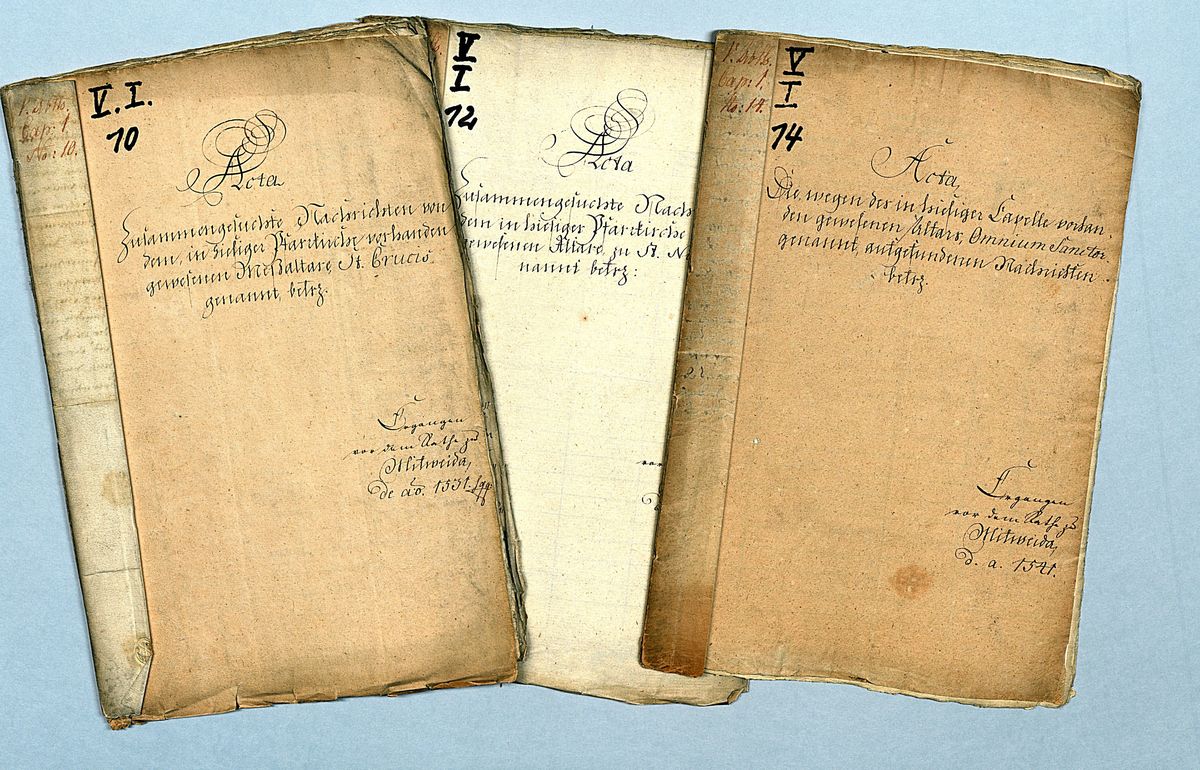 Cap: 1.
No: 10.
V. I.
10
Acta
Zusammengesuchte Nachrichten von
dem, in hiesiger Pfarrkirche vorhanden
gewesenen Meßaltare, St. Crucis
genannt, betrz.
Ergangen
vor dem Rathe zu
Mitweida,
de ao. 1551. sqq
V
I
12
Acta
Zusammengesuchte Nach
dem in hiesiger Pfarrkirche
gewesenen Altare, zu St. N
nannt betrz:
vor
Cap: 1.
No: 14.
V
I
14
Acta,
Die wegen der in hiesiger Capelle vorhan-
den gewesenen Altars, Omnium Sanctor.
genannt, aufgefundenen Nachrichten
betrz.
22.
Ergangen
vor dem Rathe zu
Mitweida,
d. a. 1541.